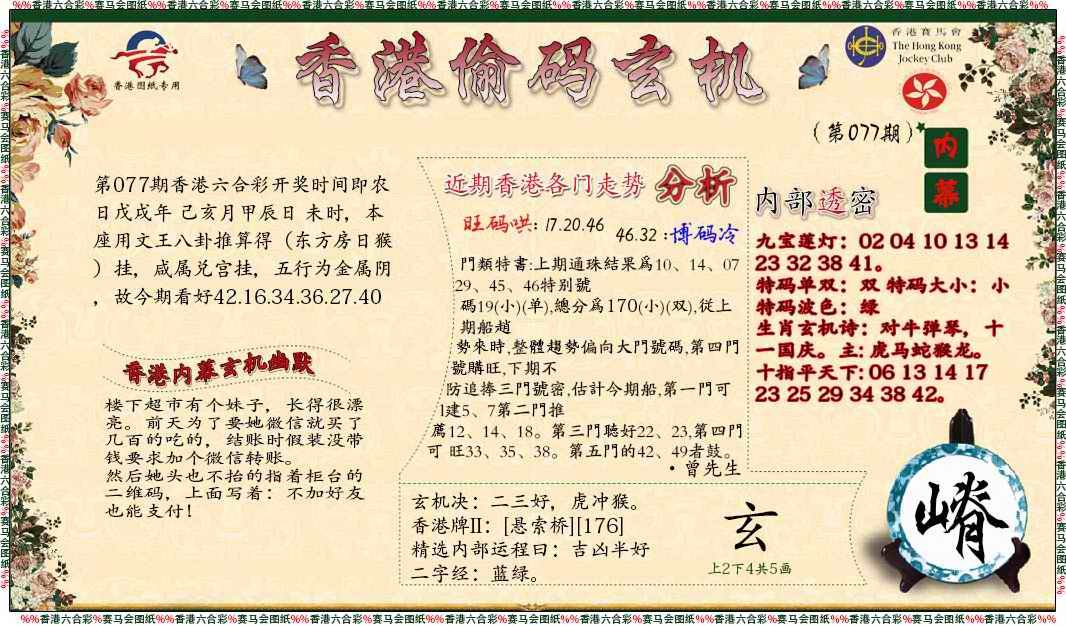 %%香港六合彩%赛马会图纸%%香港六合彩%赛马会图纸%%香港六合彩%赛马会图纸%%香港六合彩%赛马会图纸%%香港六合彩%赛马会图纸%%香港六合彩%赛马会图纸%%香港六合彩%%
香港图纸专用
香港偷码玄机
香港賽馬會
The Hong Kong
Jockey Club
(第077期)
内
幕
第077期香港六合彩开奖时间即农
日戊戌年 己亥月甲辰日 未时，本
座用文王八卦推算得（东方房日猴
）挂，咸属兑宫挂，五行为金属阴
，故今期看好42.16.34.36.27.40
香港内幕玄机幽默
楼下超市有个妹子，长得很漂
亮。前天为了要她微信就买了
几百的吃的，结账时假装没带
钱要求加个微信转账。
然后她头也不抬的指着柜台的
二维码，上面写着：不加好友
也能支付！
近期香港各门走势 分析
旺码哄：17.20.46 46.32：博码冷
門類特書:上期通珠結果爲10、14、07
29、45、46特别號
碼19(小)(单),總分爲170(小)(双),從上
期船趙
勢來時,整體趨勢偏向大門號碼,第四門
號購旺,下期不
防追捧三門號密,估計今期船,第一門可
1建5、7第二門推
薦12、14、18。第三門聽好22、23,第四門
可 旺33、35、38。第五門的42、49者鼓。
·曾先生
内部透密
九宝莲灯：02 04 10 13 14
23 32 38 41。
特码单双：双 特码大小：小
特码波色：绿
生肖玄机诗：对牛弹琴，十
一国庆。主：虎马蛇猴龙。
十指平天下：06 13 14 17
23 25 29 34 38 42。
玄机决：二三好，虎冲猴。
香港牌II：[悬索桥][176]
精选内部运程曰：吉凶半好
二字经：蓝绿。
玄
上2下4共5画
嵴
%%香港六合彩%赛马会图纸%%香港六合彩%赛马会图纸%%香港六合彩%赛马会图纸%%香港六合彩%赛马会图纸%%香港六合彩%赛马会图纸%%香港六合彩%赛马会图纸%%香港六合彩%%